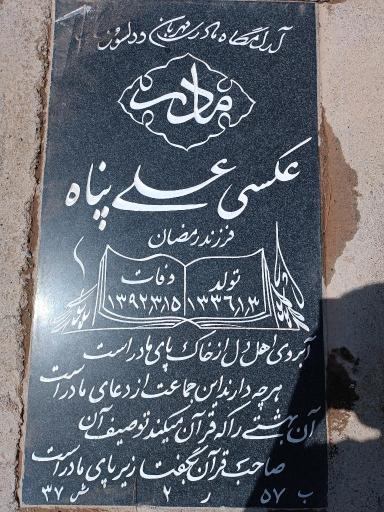 آرامگاه مادری مهربان و دلسوز
مادر
عکسی علی پناه
فرزند رمضان
تولد وفات
۱۳۳۶/۱/۳ ۱۳۹۲/۳/۱۵
آبروی اهل دل از خاک پای مادر است
هرچه دارند این جماعت از دعای مادر است
آن بهشتی را که قرآن میکند توصیف آن
صاحب قرآن بگفت زیر پای مادر است
ب ۵۷ ر ۲ ش ۳۷